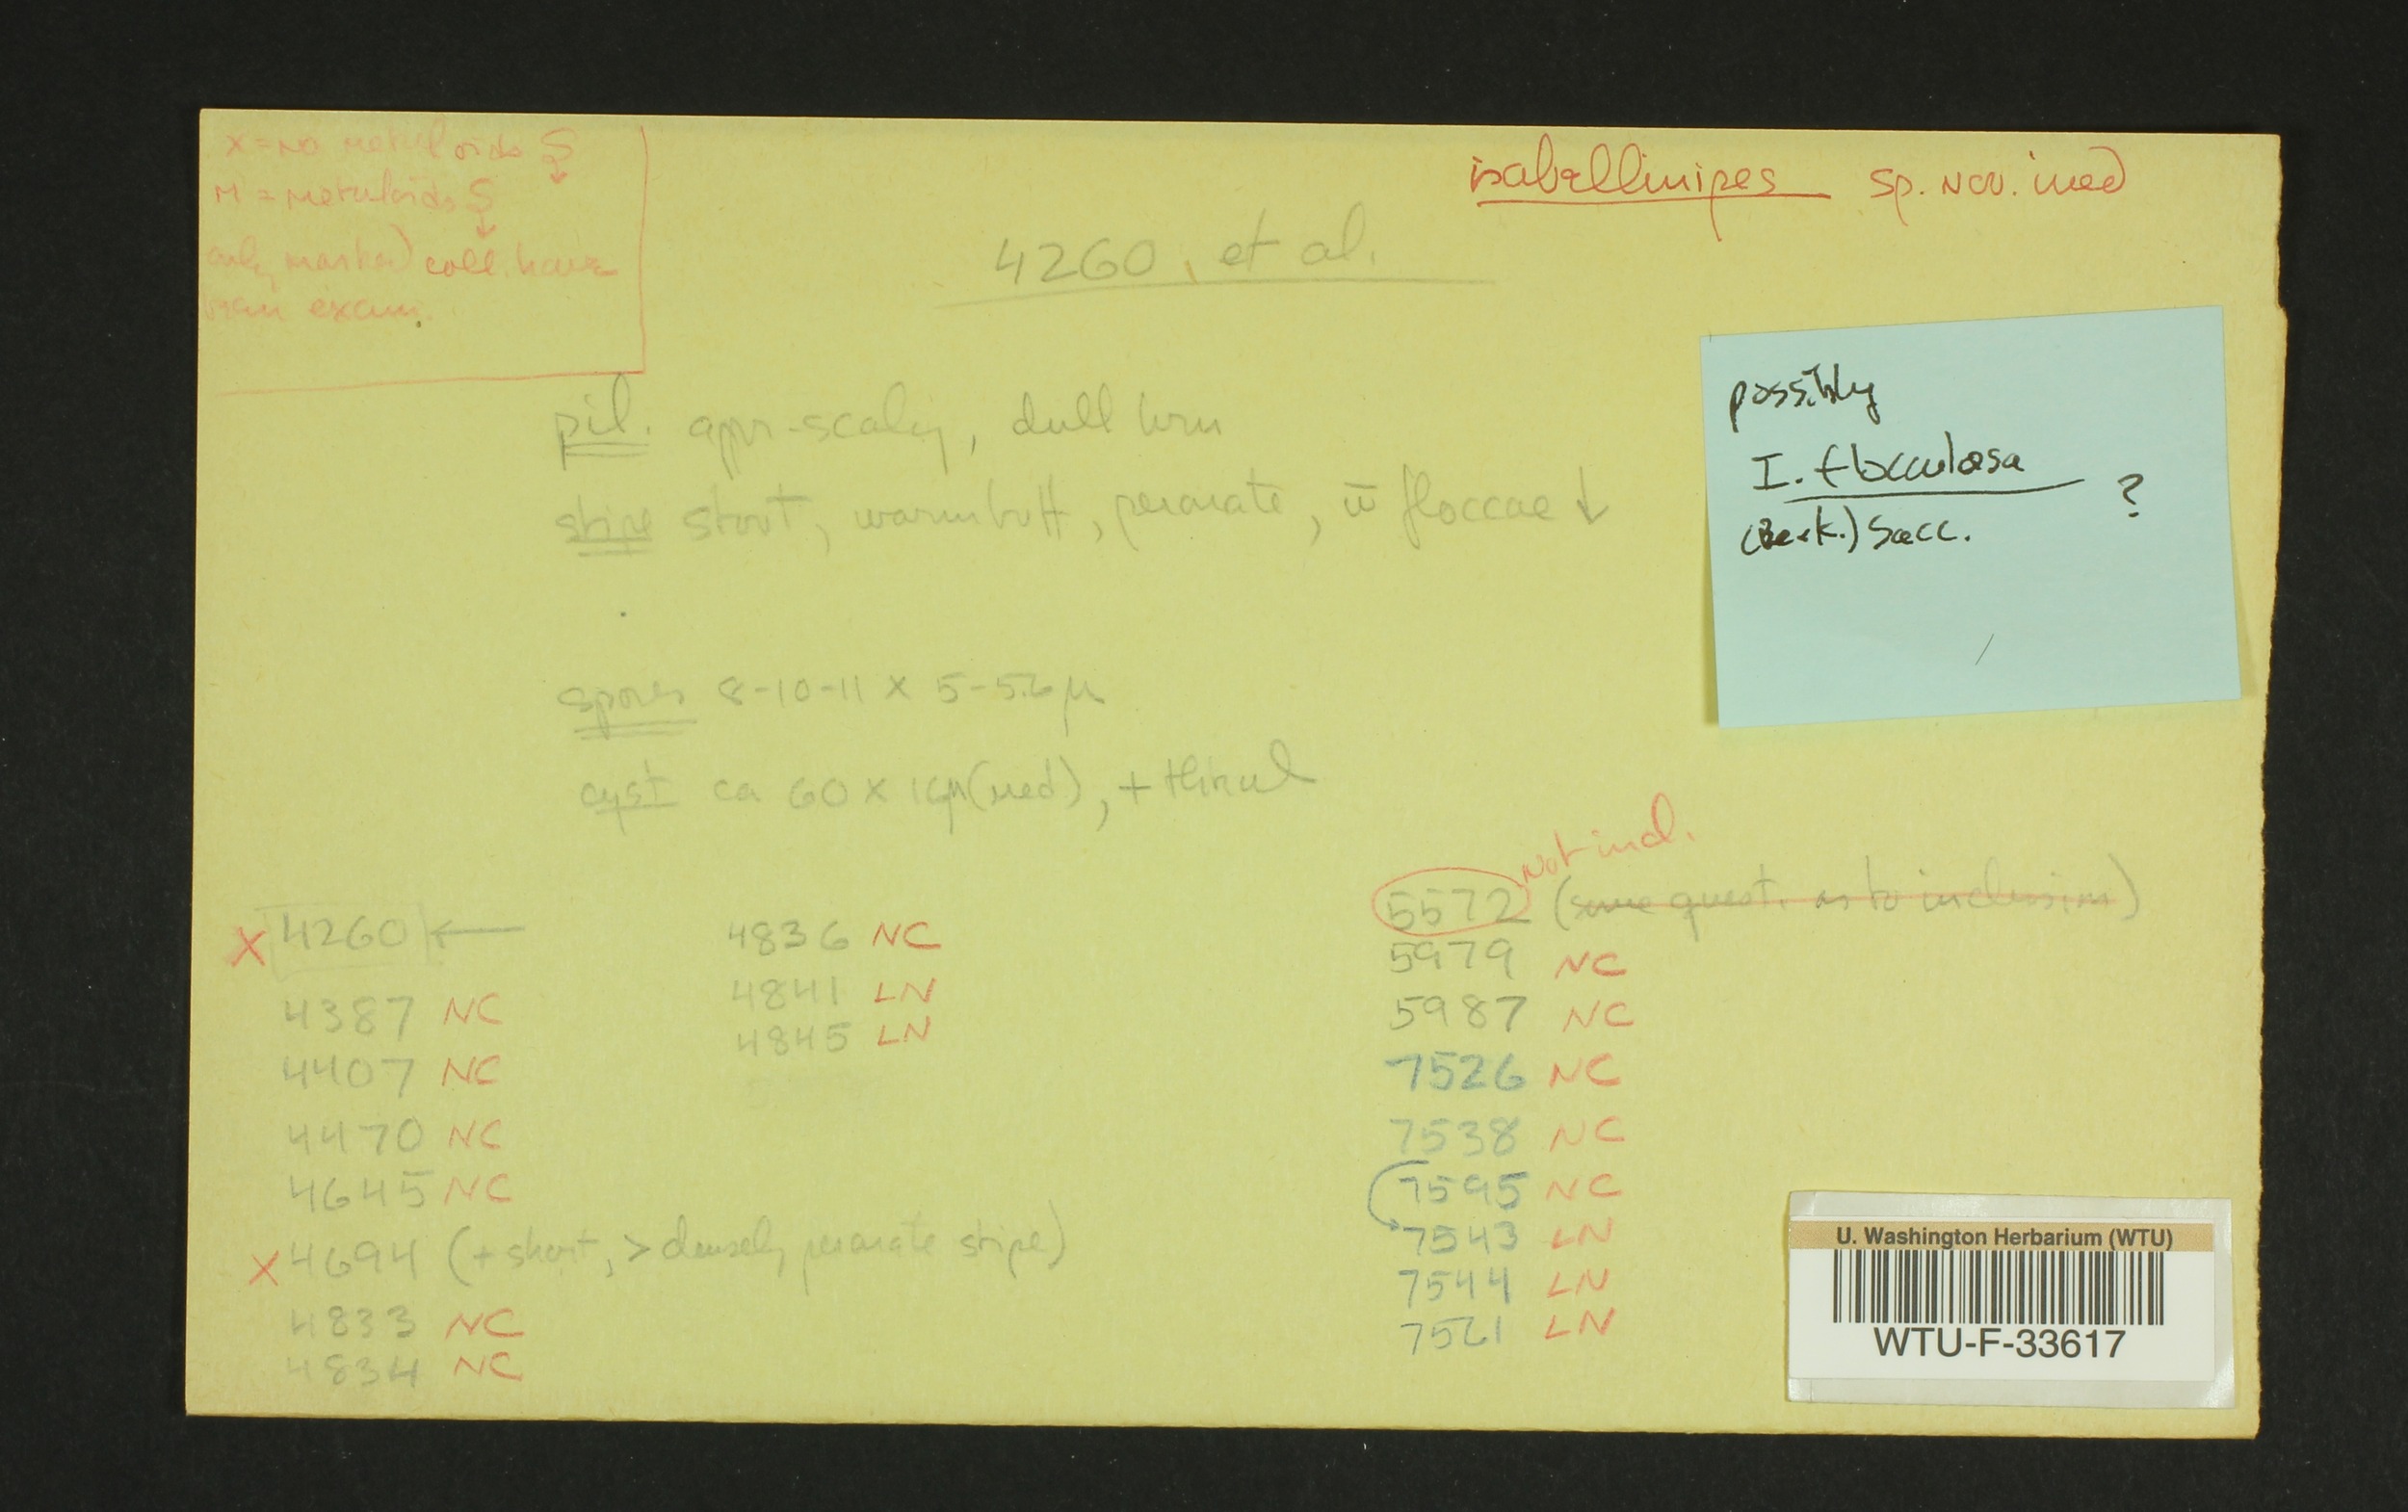 x = no metuloids S ↓
M = metuloids S ↓
only marked coll. have
been exam.
isabellinipes sp. nov. ined
4260, et al.
pil. appr-scaly, dull brn
stipe stout, warm buff, peronate, w̄ floccae ↓
possibly
I. flocculosa ?
(Berk.) Sacc.
spores 8-10-11 x 5-5.6 µ
cyst ca 60 x 16µ (med), + thinwl
X 4260 ←
4387 NC
4407 NC
4470 NC
4645 NC
X 4694 (+ short, > densely peronate stipe)
4833 NC
4834 NC
4836 NC
4841 LN
4845 LN
5572 not incl. (some quest. as to inclusion)
5979 NC
5987 NC
7526 NC
7538 NC
7595 NC
7543 LN
7544 LN
7521 LN
U. Washington Herbarium (WTU)
WTU-F-33617